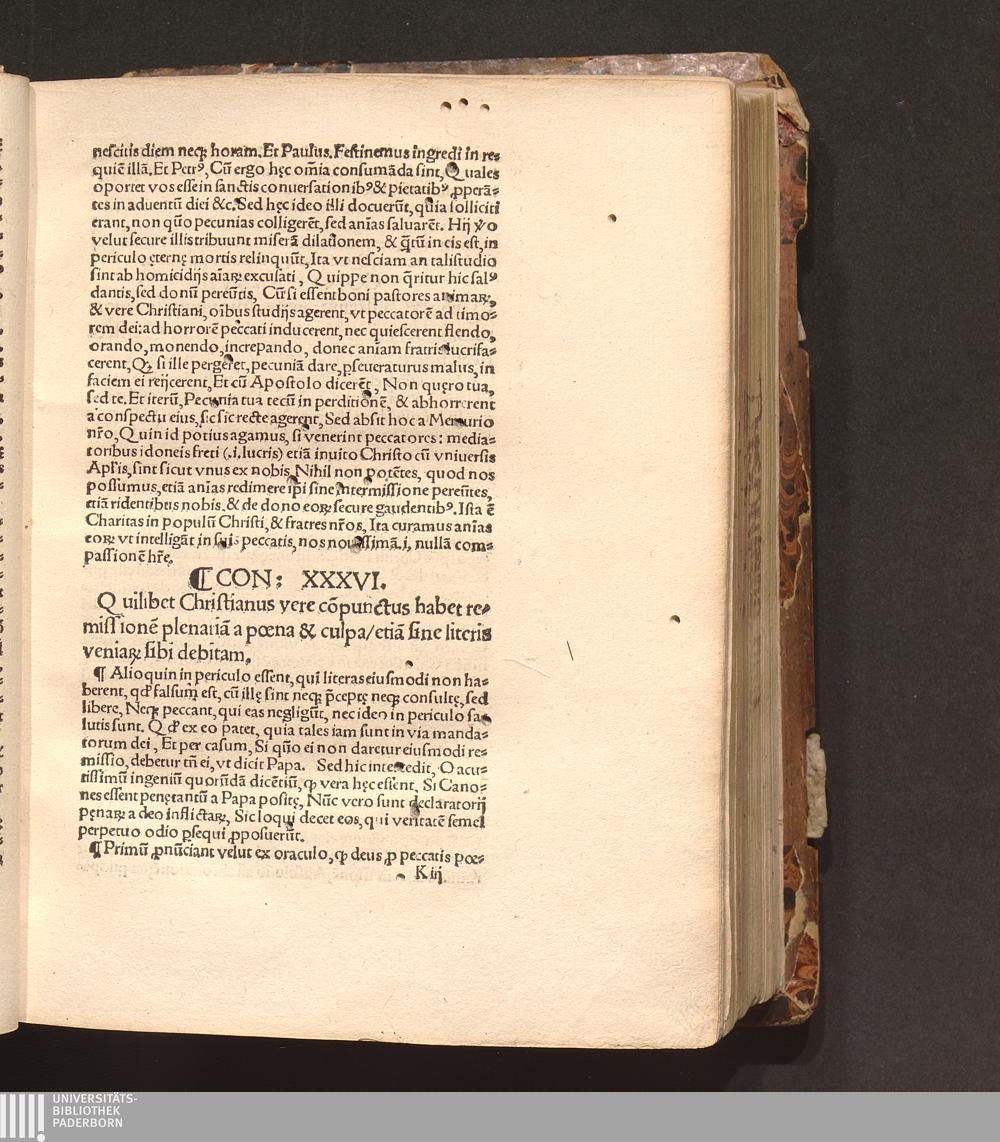 nescitis diem neq; horam. Et Paulus. Festinemus ingredi in re⸗
quiē illā. Et Petrꝰ, Cū ergo hęc om̄ia consumāda sint, Quales
oportet vos esse in sanctis conuersationibꝰ & pietatibꝰ ꝓperā⸗
tes in aduentū diei &c. Sed hęc ideo illi docuerūt, quia solliciti
erant, non quo pecunias colligerēt, sed anīas saluarēt. Hij ꝟo
velut secure illis tribuunt miserā dilationem, & q̄tū in eis est, in
periculo ęternę mortis relinquūt, Ita vt nesciam an tali studio
sint ab homicidijs aīaꝝ excusati, Quippe non q̄ritur hic salꝰ
dantis, sed donū pereūtis, Cū si essent boni pastores animaꝝ,
& vere Christiani, oībus studijs agerent, vt peccatorē ad timo⸗
rem dei: ad horrorē peccati inducerent, nec quiescerent flendo,
orando, monendo, increpando, donec anīam fratris lucrifa⸗
cerent, Qꝫ si ille pergeret, pecuniā dare, ꝑseueraturus malus, in
faciem ei reijcerent, Et cū Apostolo dicerēt, Non quęro tua,
sed te. Et iterū, Pecunia tua tecū in perditionē, & abhorrerent
a conspectu eius, sic sic recte agerent, Sed absit hoc a Mercurio
nr̄o, Quin id potius agamus, si venerint peccatores: media⸗
toribus idoneis freti (.i. lucris) etiā inuito Christo cū vniuersis
Apl̄is, sint sicut vnus ex nobis, Nihil non potētes, quod nos
possumus, etiā anīas redimere ip̄i sine intermissione pereūtes,
etiā ridentibus nobis. & de dono eoꝝ secure gaudentibꝰ. Ista ē
Charitas in populū Christi, & fratres nr̄os, Ita curamus anīas
eoꝝ vt intelligāt in suis peccatis, nos nouissimā .i. nullā com⸗
passionē hr̄e.
¶ CON: XXXVI.
Quilibet Christianus vere cōpunctus habet re⸗
missionē plenariā a pœna & culpa/etiā sine literis
veniaꝝ sibi debitam.
¶ Alioquin in periculo essent, qui literas eiusmodi non ha⸗
berent, qđ falsum est, cū illę sint neq; p̄ceptę neq; consultę, sed
libere, Neq; peccant, qui eas negligūt, nec ideo in periculo sa⸗
lutis sunt. Qđ ex eo patet, quia tales iam sunt in via manda⸗
torum dei, Et per casum, Si quo ei non daretur eiusmodi re⸗
missio, debetur tn̄ ei, vt dicit Papa. Sed hic intercedit, O acu⸗
tissimū ingeniū quorūdā dicētiū, ꝙ vera hęc essent, Si Cano⸗
nes essent penę tantū a Papa positę, Nūc vero sunt declaratorij
pęnaꝝ a deo inflictaꝝ, Sic loqui decet eos, qui veritatē semel
perpetuo odio ꝑsequi ꝓposuerūt.
¶ Primū ꝓnūciant velut ex oraculo, ꝙ deus ꝓ peccatis pœ⸗
K iij
UNIVERSITÄTS-
BIBLIOTHEK
PADERBORN